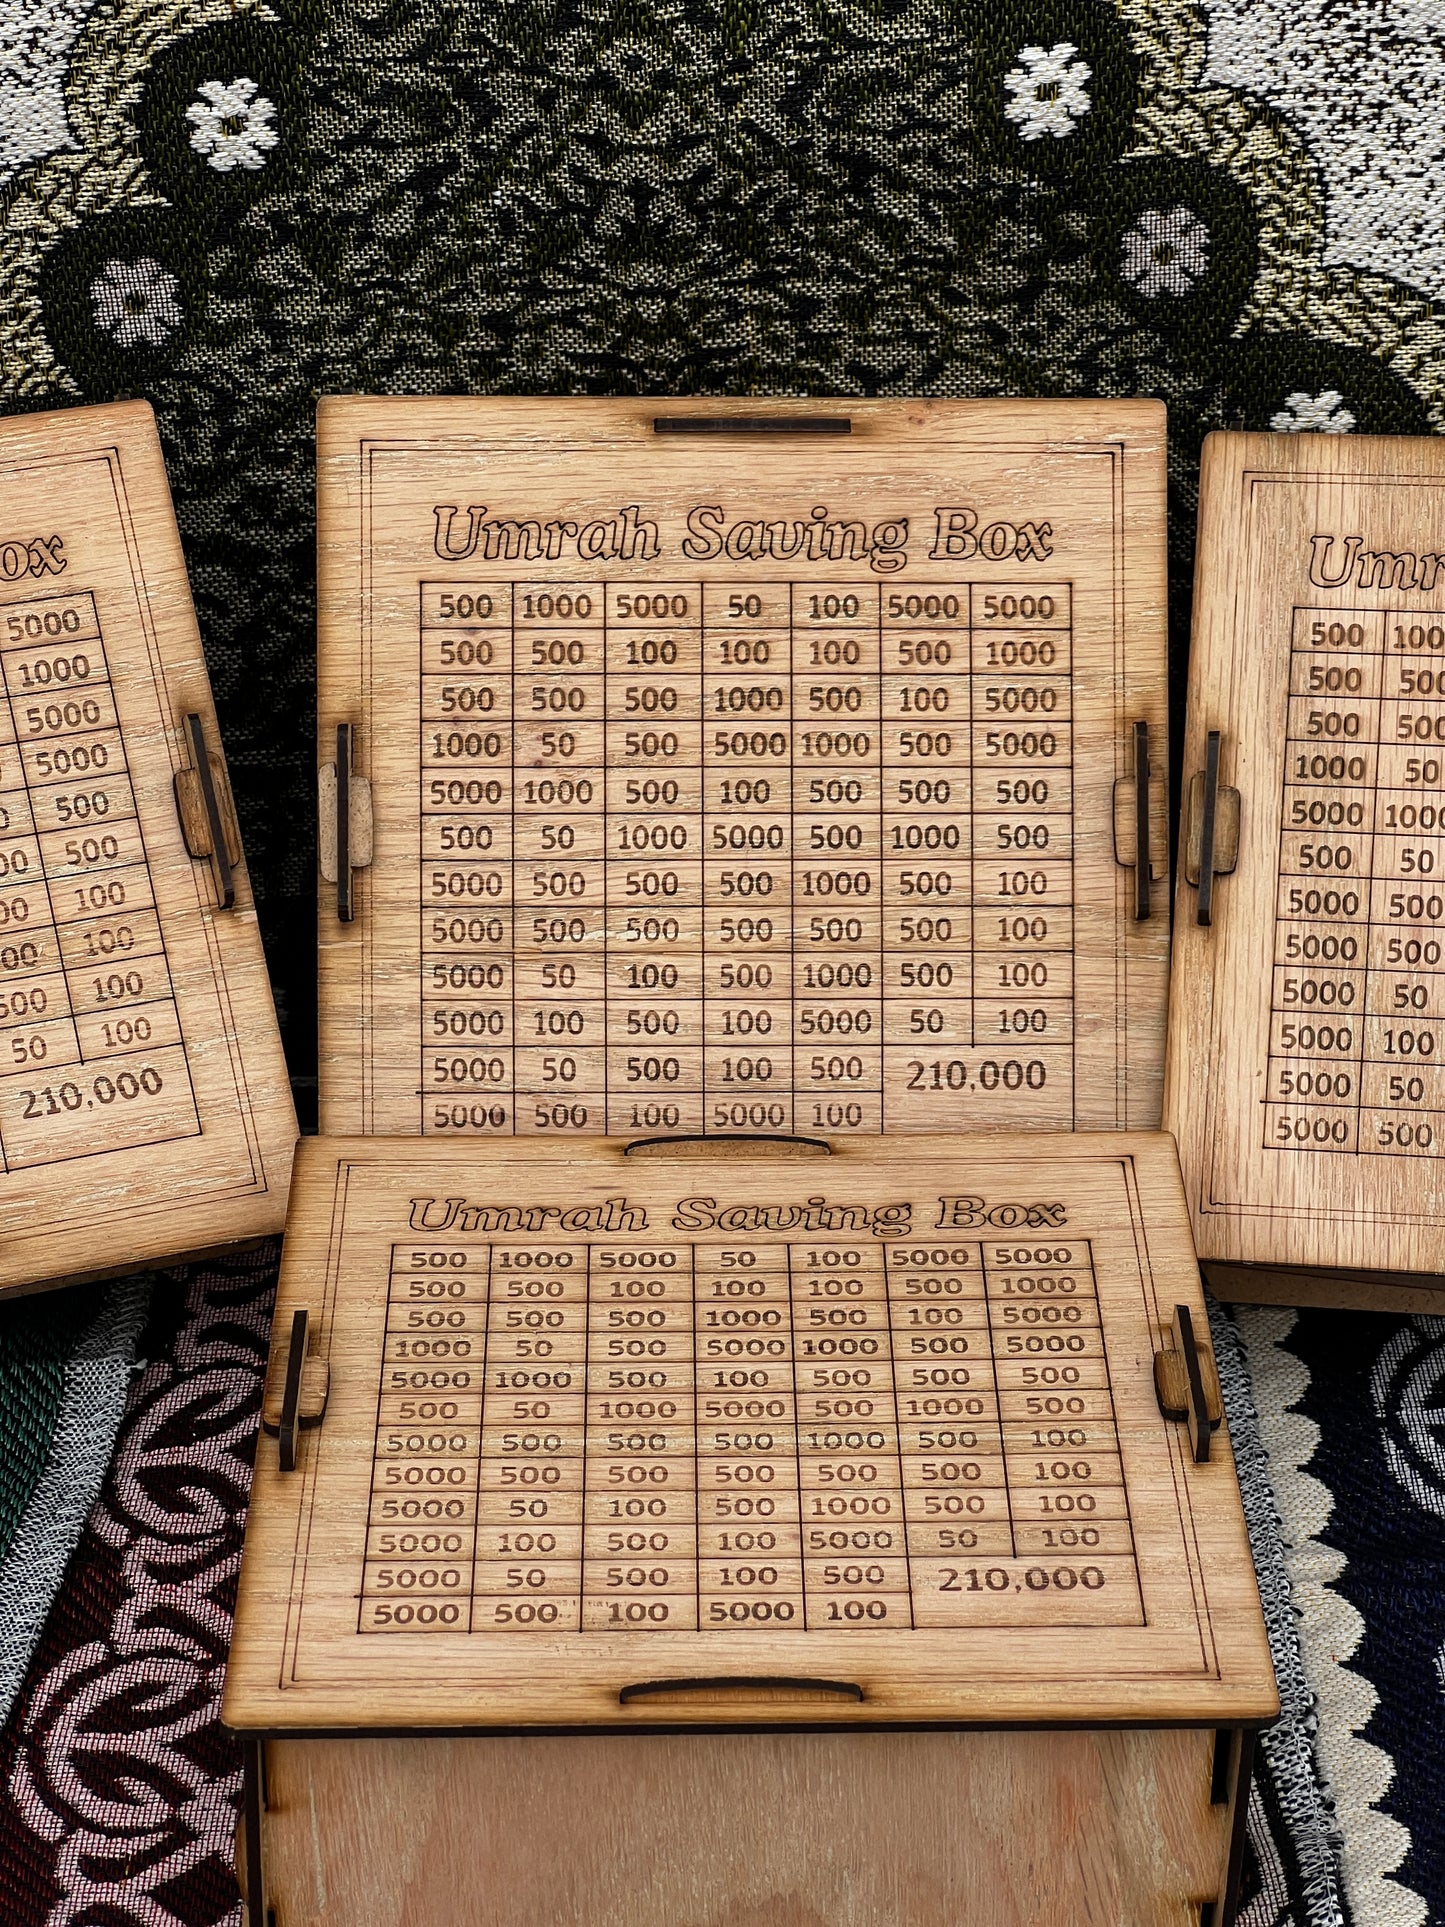 ox
5000
1000
5000
5000
500
00 500
00 100
00 100
500 100
50 100
210,000
Umrah Saving Box
500 1000 5000 50 100 5000 5000
500 500 100 100 100 500 1000
500 500 500 1000 500 100 5000
1000 50 500 5000 1000 500 5000
5000 1000 500 100 500 500 500
500 50 1000 5000 500 1000 500
5000 500 500 500 1000 500 100
5000 500 500 500 500 500 100
5000 50 100 500 1000 500 100
5000 100 500 100 5000 50 100
5000 50 500 100 500 210,000
5000 500 100 5000 100
Umr
500 100
500 500
500 500
1000 50
5000 1000
500 50
5000 500
5000 500
5000 50
5000 100
5000 50
5000 500
Umrah Saving Box
500 1000 5000 50 100 5000 5000
500 500 100 100 100 500 1000
500 500 500 1000 500 100 5000
1000 50 500 5000 1000 500 5000
5000 1000 500 100 500 500 500
500 50 1000 5000 500 1000 500
5000 500 500 500 1000 500 100
5000 500 500 500 500 500 100
5000 50 100 500 1000 500 100
5000 100 500 100 5000 50 100
5000 50 500 100 500 210,000
5000 500 100 5000 100